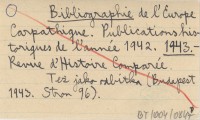 Bibliographie de l'Europe
Carpathique. Publications his-
toriques de l'année 1942. 1943.-
Revue d'Histoire Comparée
Też jako odbitka (Budapest
1943. Stron 96).
BT/004/084